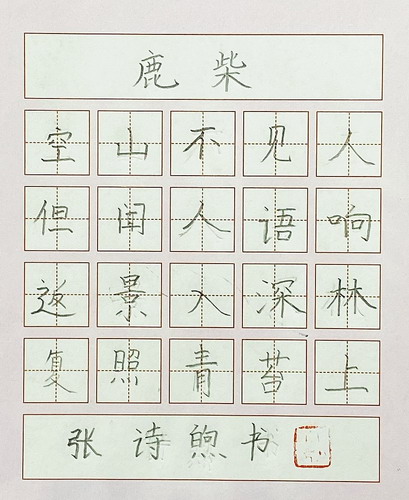 鹿柴
空山不见人
但闻人语响
返景入深林
复照青苔上
张诗煦书